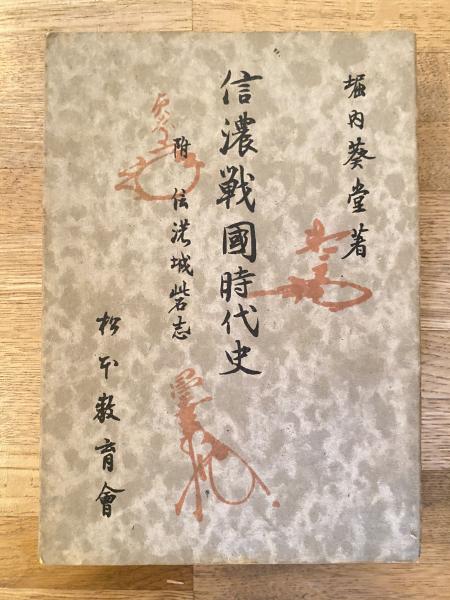 堀内葵堂著
信濃戰國時代史
附 信濃城砦志
松本敎育會